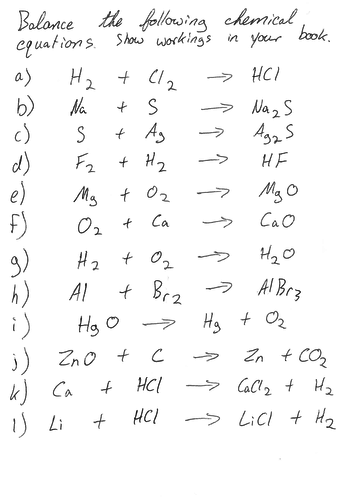 Balance the following chemical
equations. Show workings in your book.
a) H₂ + Cl₂ → HCl
b) Na + S → Na₂S
c) S + Ag → Ag₂S
d) F₂ + H₂ → HF
e) Mg + O₂ → MgO
f) O₂ + Ca → CaO
g) H₂ + O₂ → H₂O
h) Al + Br₂ → AlBr₃
i) HgO → Hg + O₂
j) ZnO + C → Zn + CO₂
k) Ca + HCl → CaCl₂ + H₂
l) Li + HCl → LiCl + H₂